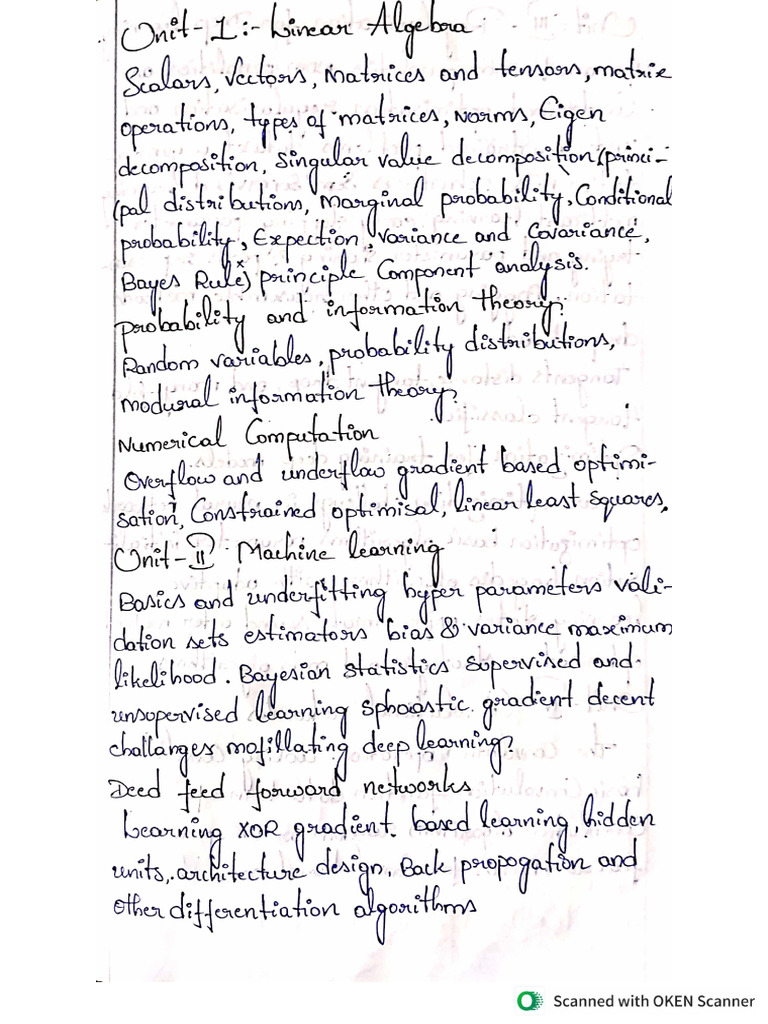 Unit-1:- Linear Algebra
Scalars, Vectors, Matrices and tensors, matrix
operations, types of matrices, Norms, Eigen
decomposition, Singular value decomposition (princi-
(pal distributions, Marginal probability, Conditional
probability, Expection, variance and Covariance,
Bayes Rule) principle Component analysis.
Probability and information theory:
Random variables, probability distributions,
modural information theory.
Numerical Computation
Overflow and underflow gradient based optimi-
sation, Constrained optimisal, linear least squares.
Unit-II Machine learning
Basics and underfitting hyper parameters vali-
dation sets estimators bias & variance maximum
likelihood. Bayesian Statistics Supervised and
unsupervised learning sphoastic gradient decent
challanges mofillating deep learning.
Deed feed forward networks
Learning XOR gradient based learning, hidden
units, architecture design, Back propogation and
other differentiation algorithms
Scanned with OKEN Scanner